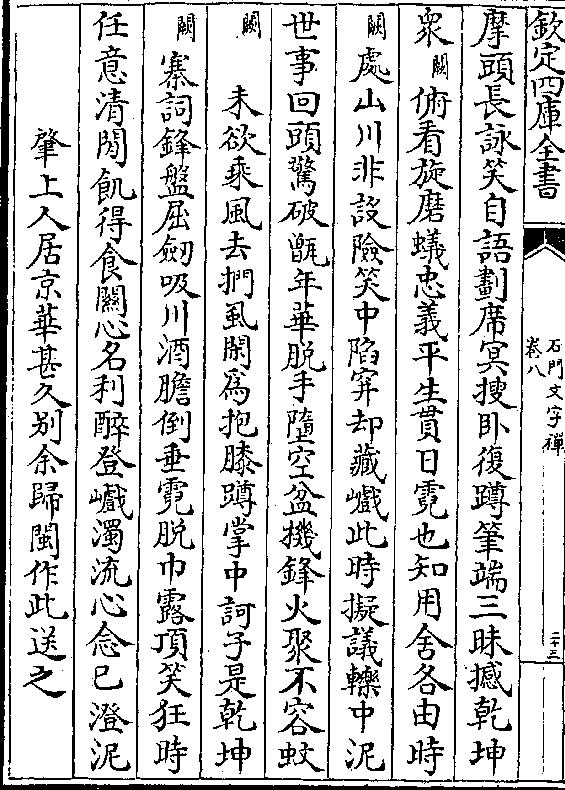 欽定四庫全書
石門文字禪
卷八
二十三
摩頭長詠笑自語劃席㝠搜卧復蹲筆端三昧撼乾坤
衆闕俯看旋磨蟻忠義平生貫日霓也知用舍各由時
闕處山川非設險笑中陷穽却藏巇此時擬議轢中泥
世事回頭驚破甑年華脱手墮空盆機鋒火聚不容蚊
闕未欲乘風去捫虱閑為抱膝蹲掌中訶子是乾坤
闕寨詞鋒盤屈劒吸川酒膽倒垂霓脱巾露頂笑狂時
任意清閒飢得食關心名利醉登巇濁流心念已澄泥
肇上人居京華甚久别余歸閩作此送之